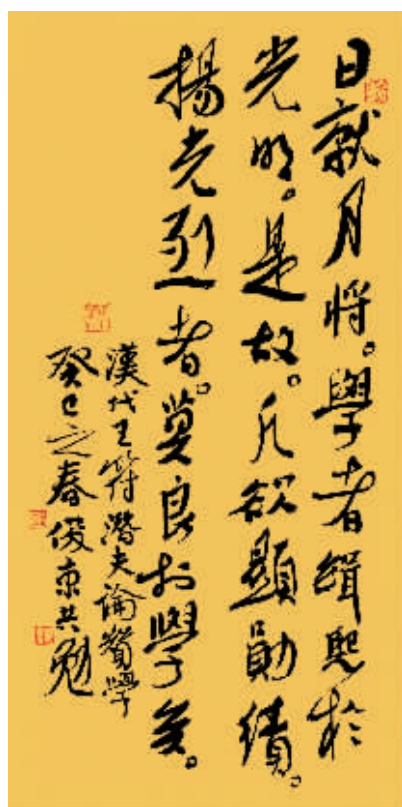 日就月將。學者緝熙於
光明。是故。凡欲顯勛績。
揚光烈者。莫良於學矣。
漢代王符潛夫論贊學
癸巳之春俊東共勉